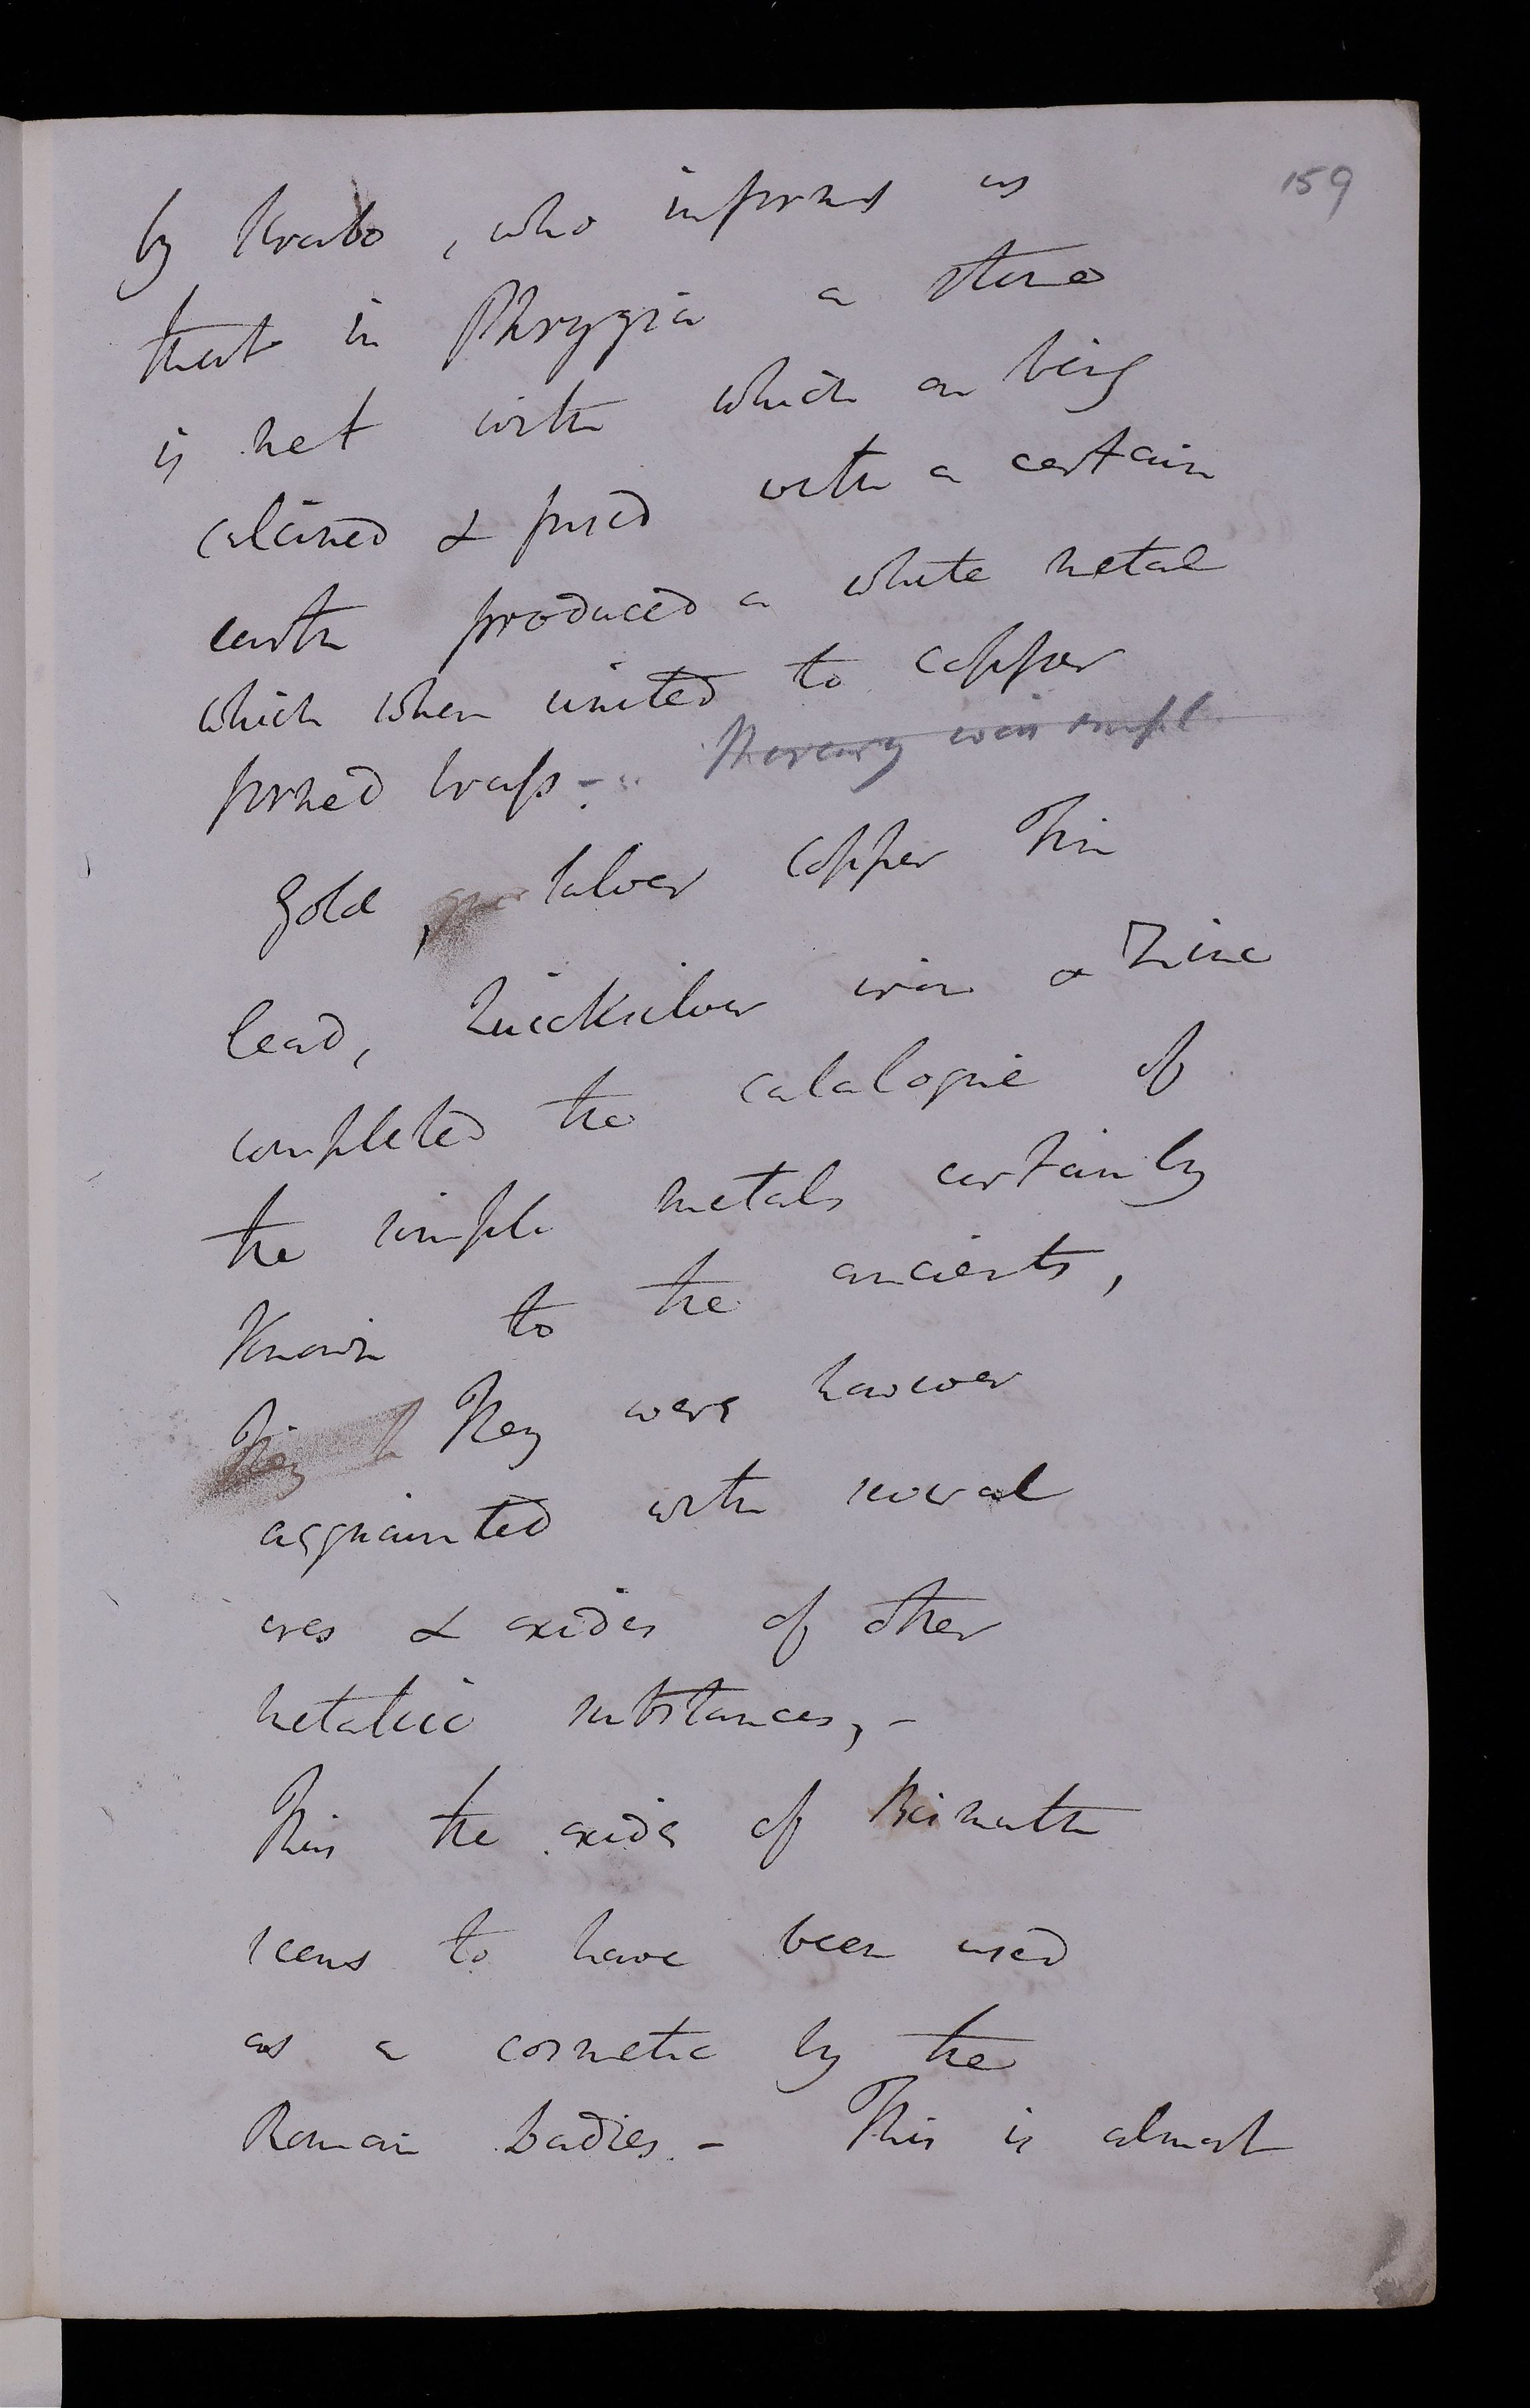 159
by Strabo, who informs us
that in Phrygia a stone
is met with which on being
calcined & fused with a certain
earth produced a white metal
which when united to copper
formed brass -. Mercury was empl
Gold, Silver Copper Tin
lead, Quicksilver iron & Zinc
completed the catalogue of
the simple metals certainly
Known to the ancients,
They They were however
acquainted with several
ores & oxides of other
metallic substances, -
This the oxide of Bismuth
seems to have been used
as a cosmetic by the
Roman Ladies. - This is almost